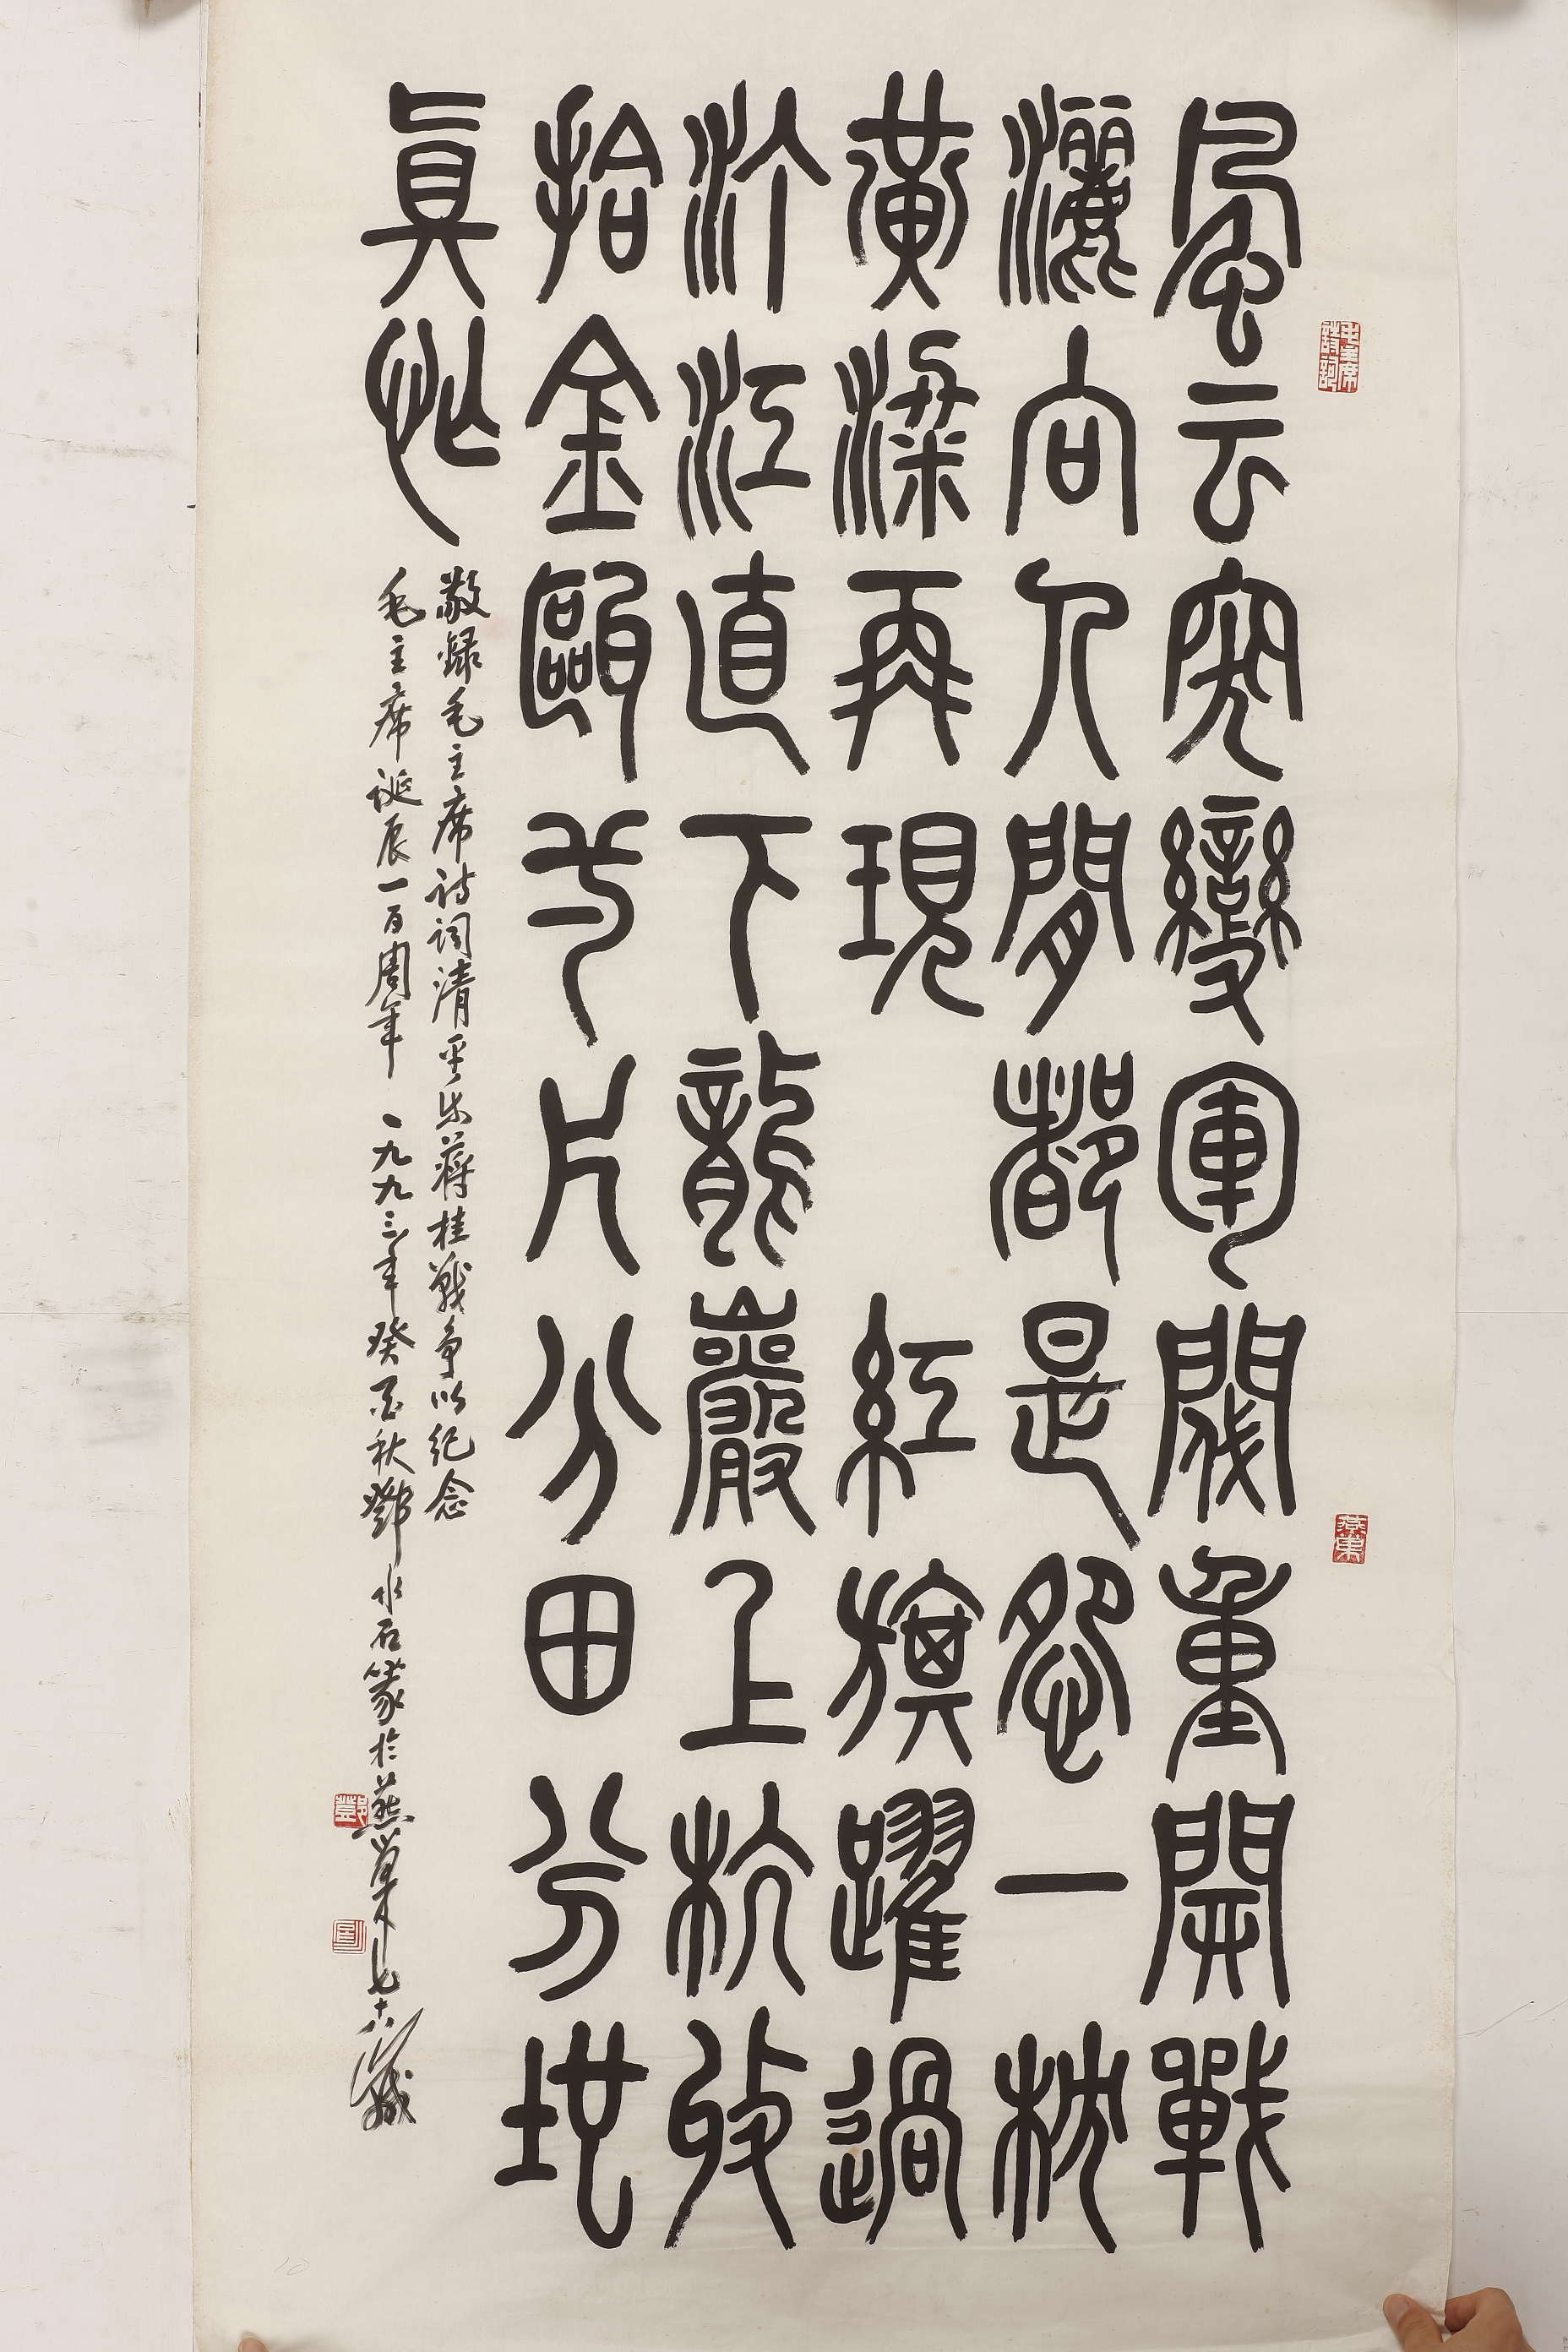 風云突變軍閥重開戰
灑向人閒都是怨一枕
黃粱再現 紅旗躍過
汀江直下龍巖上杭收
拾金甌一片分田分地
眞忙
敬録毛主席詩词清平乐蒋桂戰争以纪念
毛主席诞辰一百周年 一九九三年癸酉秋鄧水石篆於燕巢七十六歲